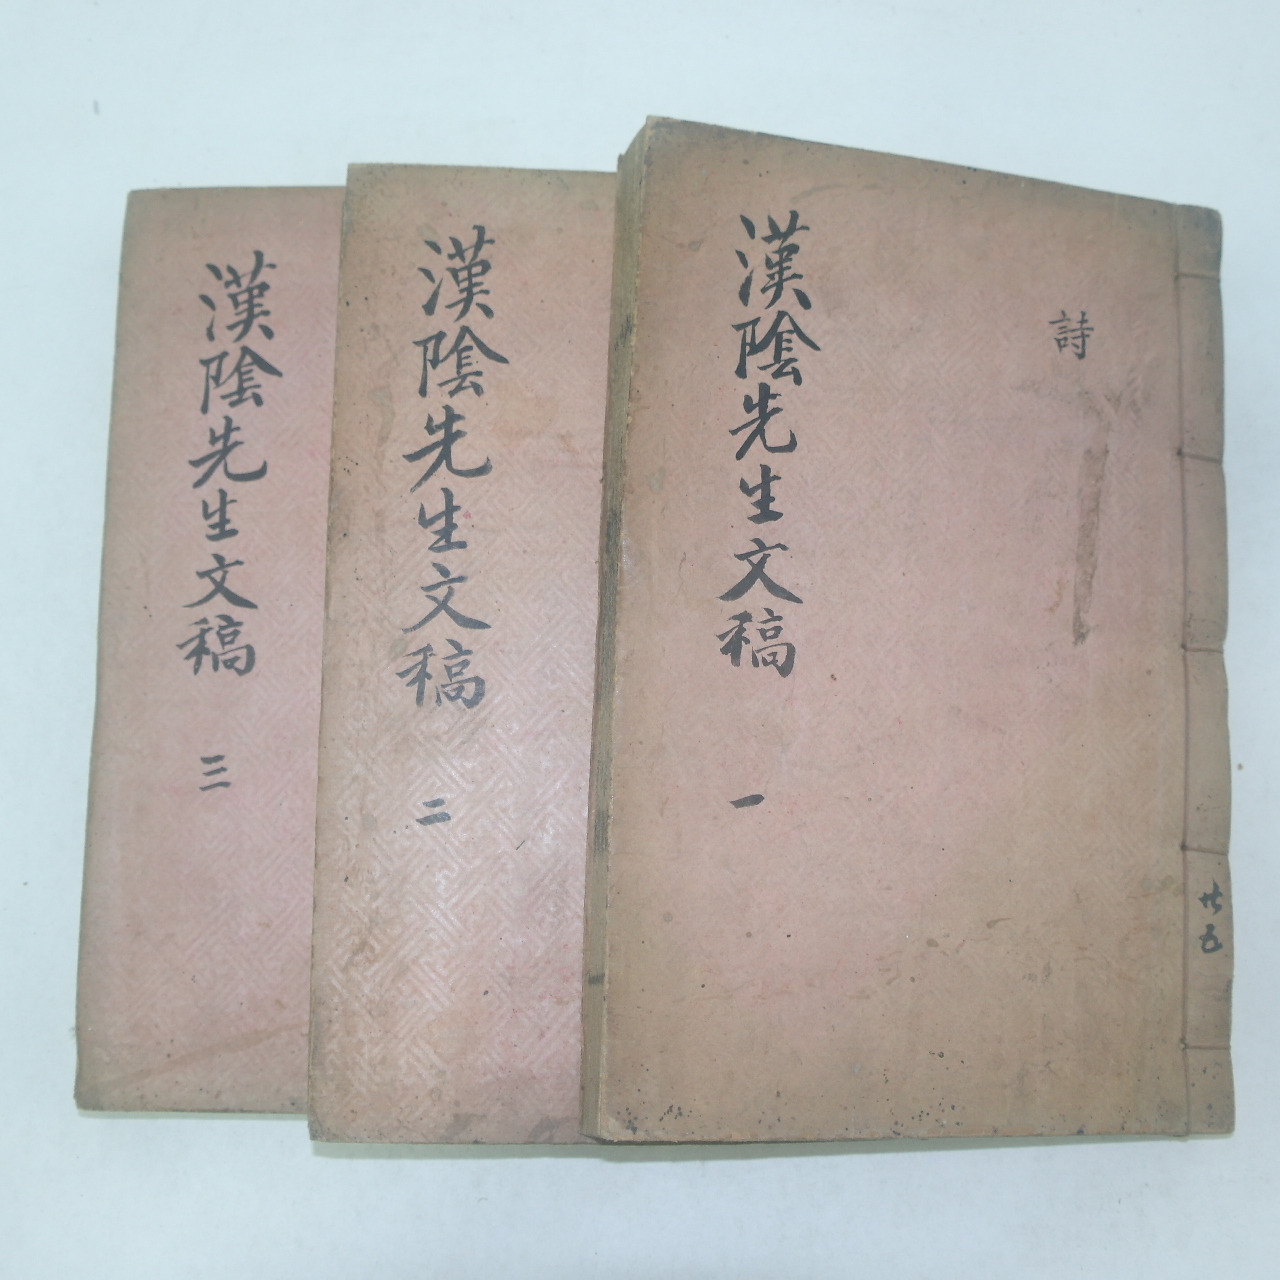 詩
漢陰先生文稿 一
廿五
漢陰先生文稿 二
漢陰先生文稿 三